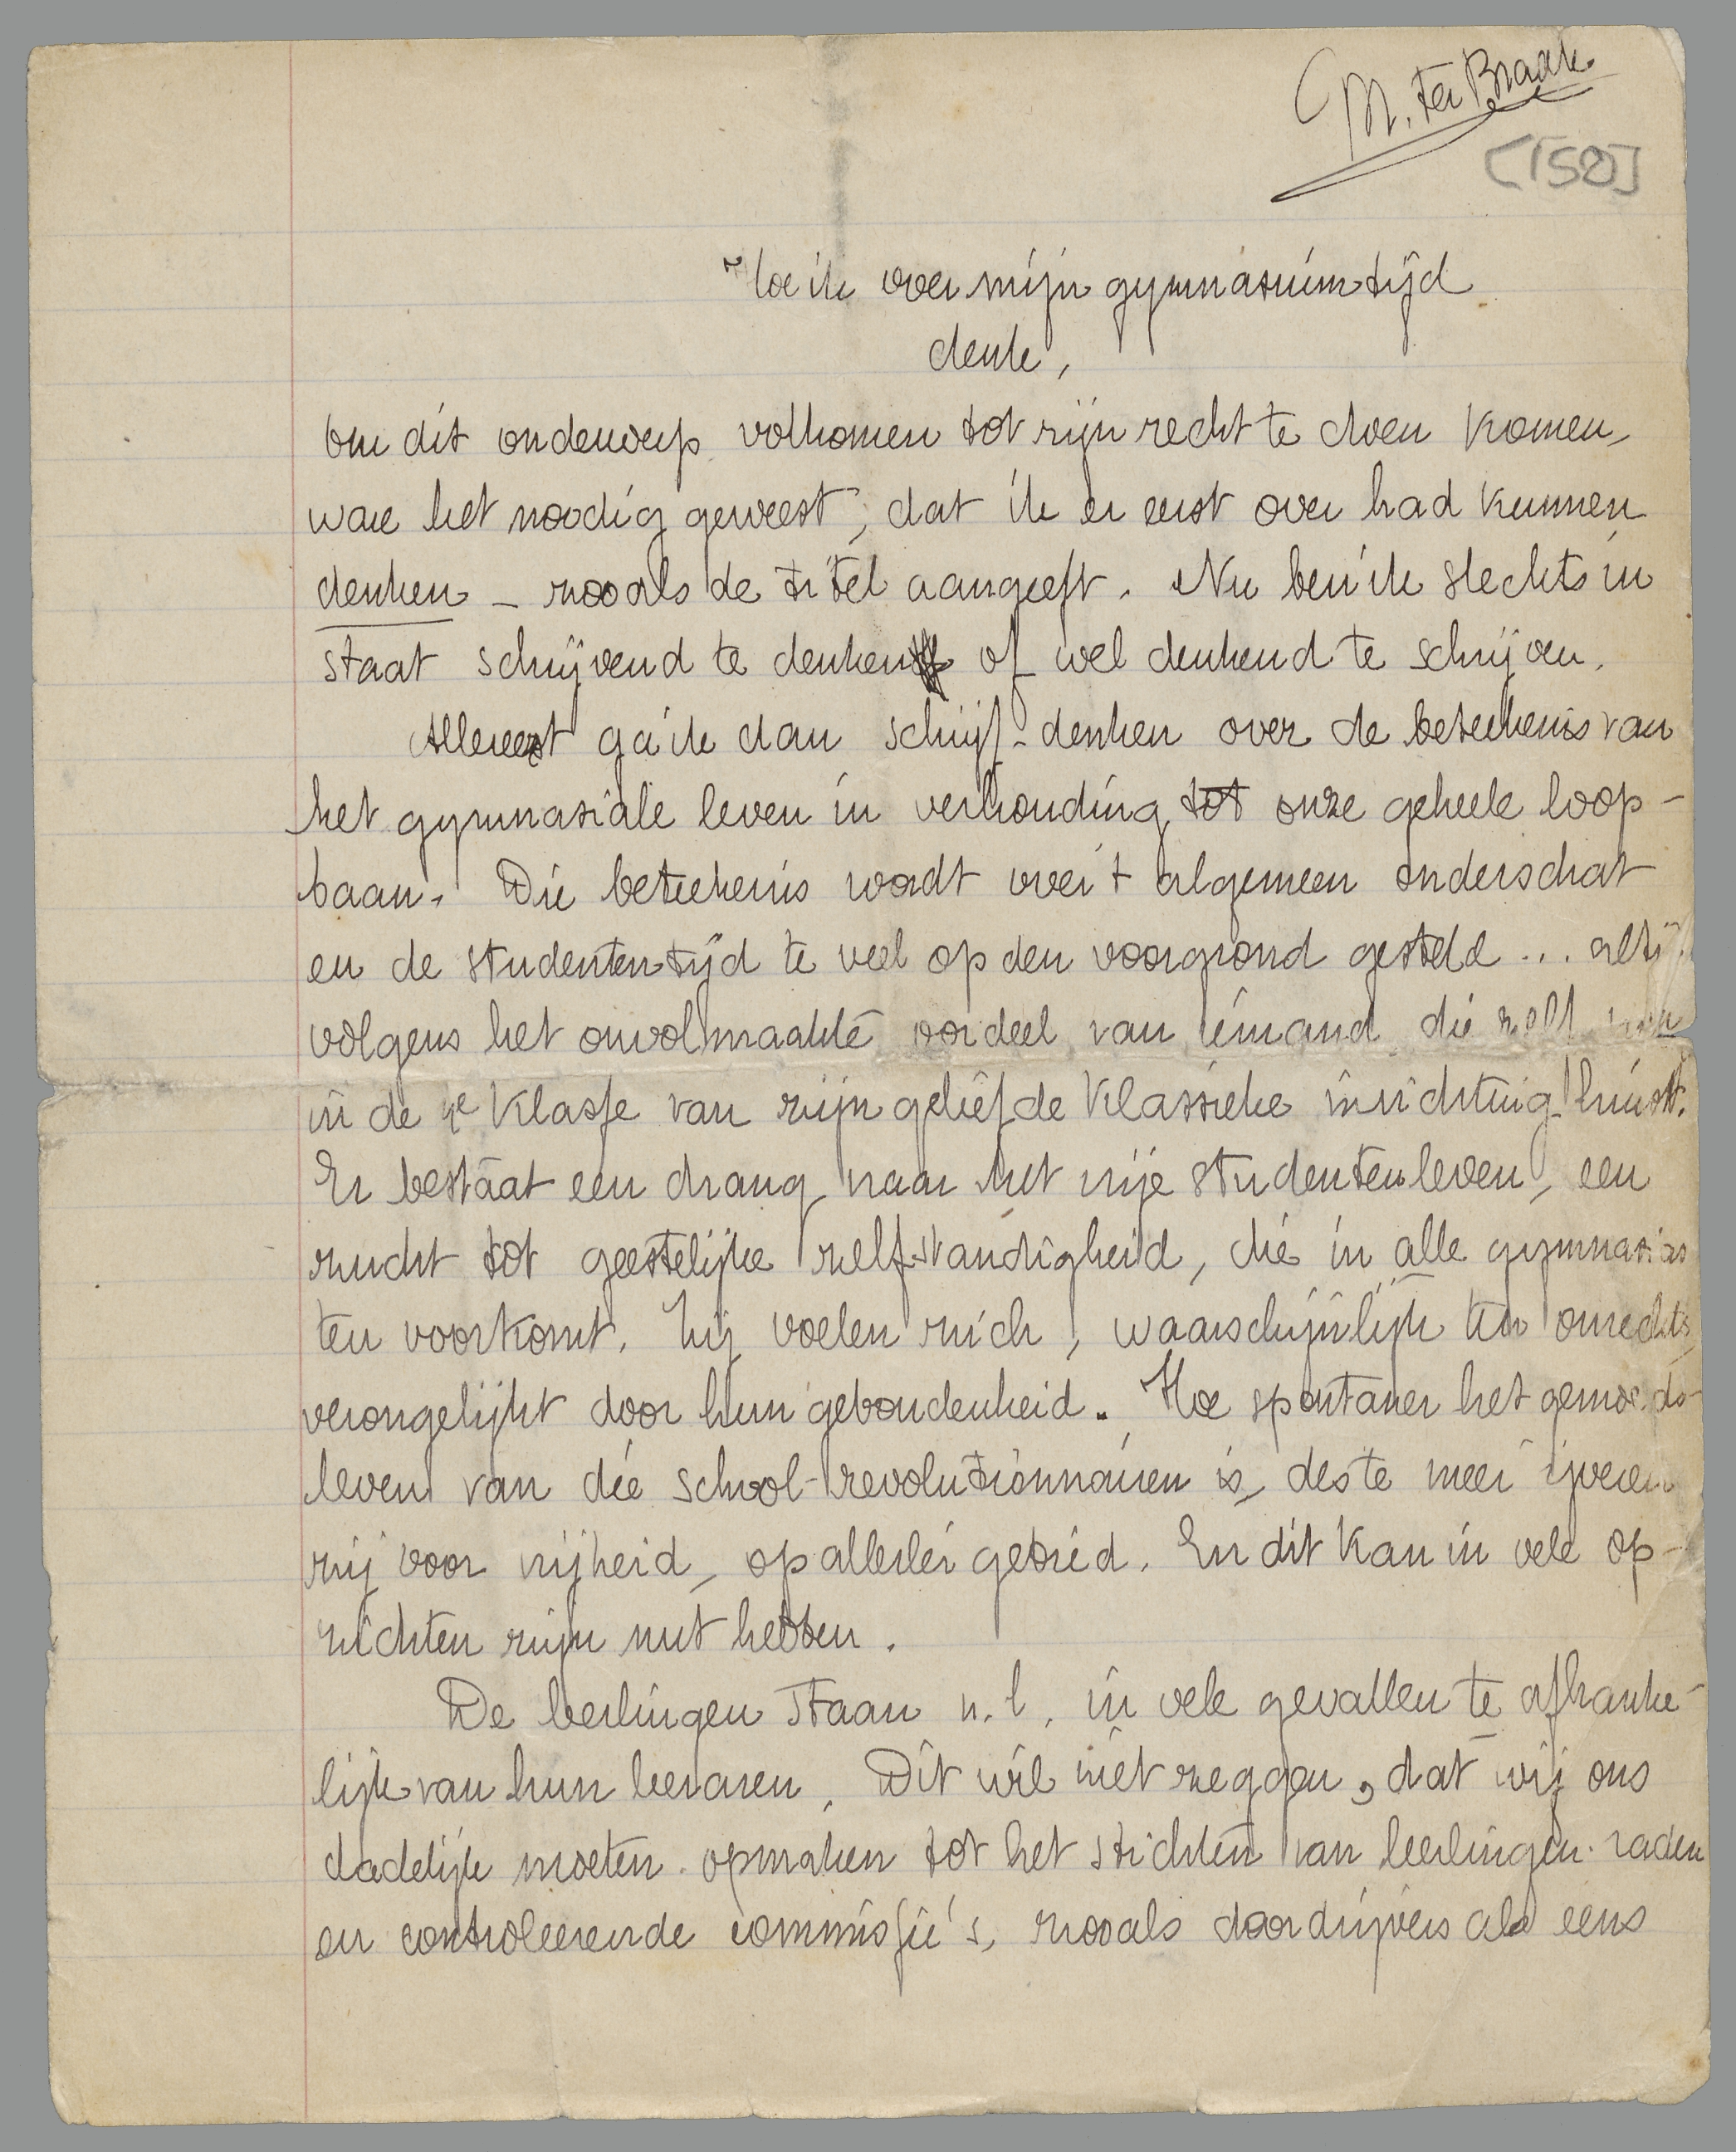 M. ter Braak.
[158]
Hoe ik over mijn gymnasiumtijd
denk,
Om dit onderwerp volkomen tot zijn recht te doen komen,
ware het noodig geweest, dat ik er eerst over had kunnen
denken – zooals de titel aangeeft. Nu ben ik slechts in
staat schrijvend te denken of wel denkend te schrijven.
Allereerst ga ik dan schrijf-denken over de beteekenis van
het gymnasiale leven in verhouding tot onze geheele loop-
baan. Die beteekenis wordt over 't algemeen onderschat
en de studententijd te veel op den voorgrond gesteld ...
volgens het onvolmaakte oordeel van iemand die zelf
in de 4e klasse van zijn geliefde klassieke inrichting huist.
Er bestaat een drang naar het vrije studentenleven, een
zucht tot geestelijke zelfstandigheid, die in alle gymnasias
ten voorkomt. Zij voelen zich, waarschijnlijk ten onrechte,
verongelijkt door hun gebondenheid. Hoe spontaner het gemoeds-
leven van die school-revolutionnairen is, des te meer ijveren
zij voor vrijheid, op allerlei gebied. En dit kan in vele op-
zichten zijn nut hebben.
De leerlingen staan n.l. in vele gevallen te afhanke-
lijk van hun leeraren. Dit wil niet zeggen, dat wij ons
dadelijk moeten opmaken tot het stichten van leerlingen-raden
en controleerende commissie's, zooals doordrijvers als eens